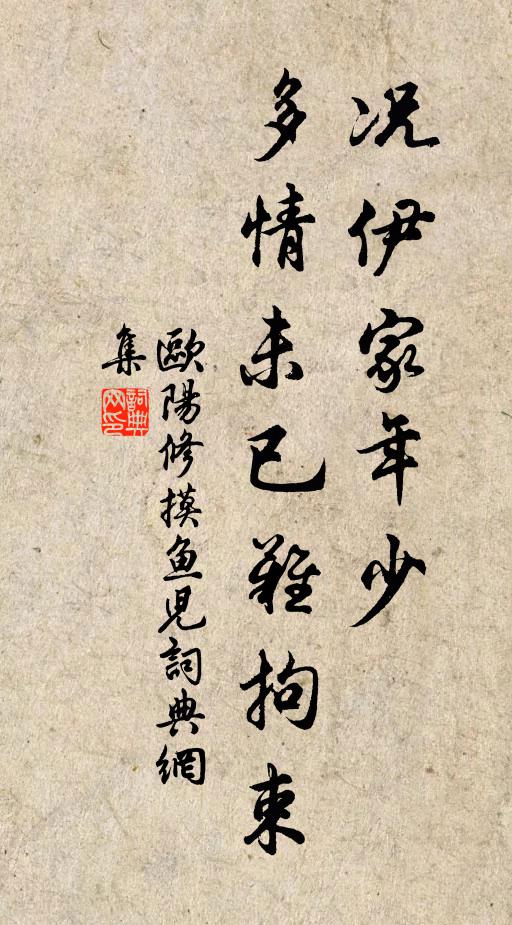 况伊家年少
多情未已難拘束
歐陽修摸鱼児詞典網
集
詞典
网印